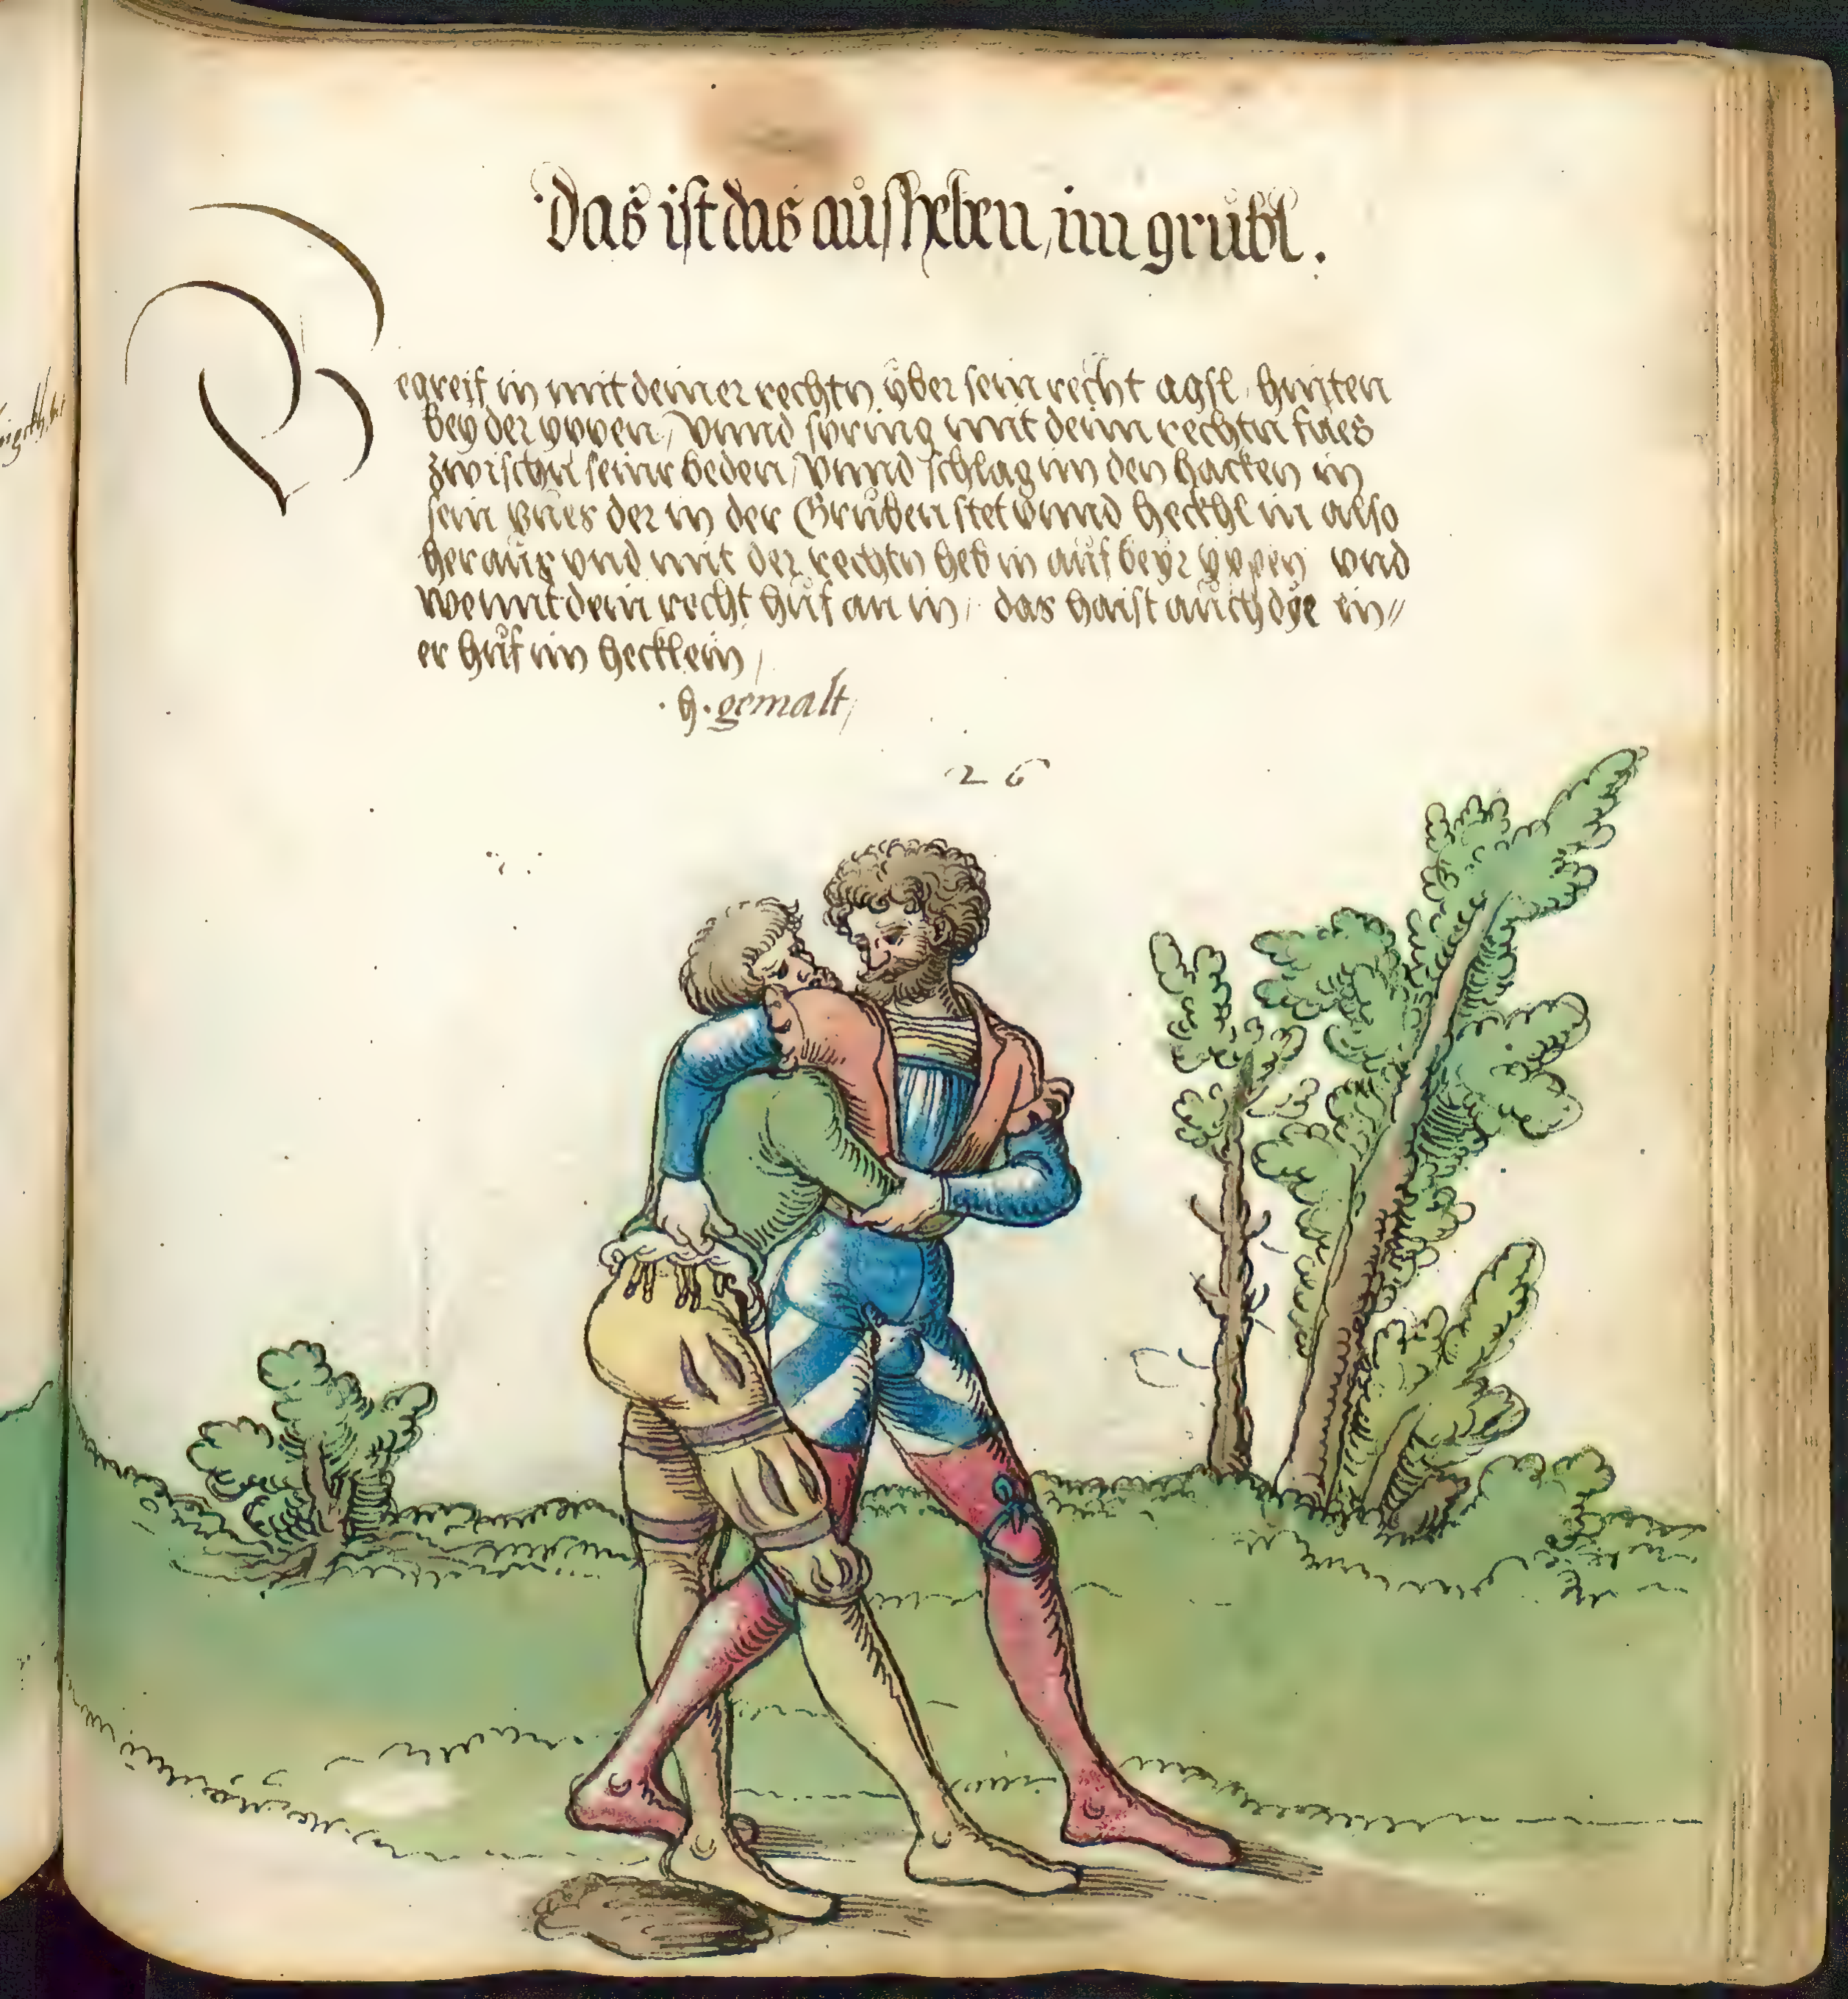 Das ist das aůsheben, im grübl.
Begreif in mit deiner rechtn über sein recht agsl, hinten
bey der yppen, vnnd spring mit deim rechtn fues
zwischn seine beden, vnnd schlag im den hacken in
sein vues der in der Grůben stet vnnd heckhl in also
heraůs vnd mit der rechtn heb in aůf beyr yppen vnd
went dein recht hůf an in, das haist aůch dye in//
er hůf im hecklein,
. h. gemalt,
26